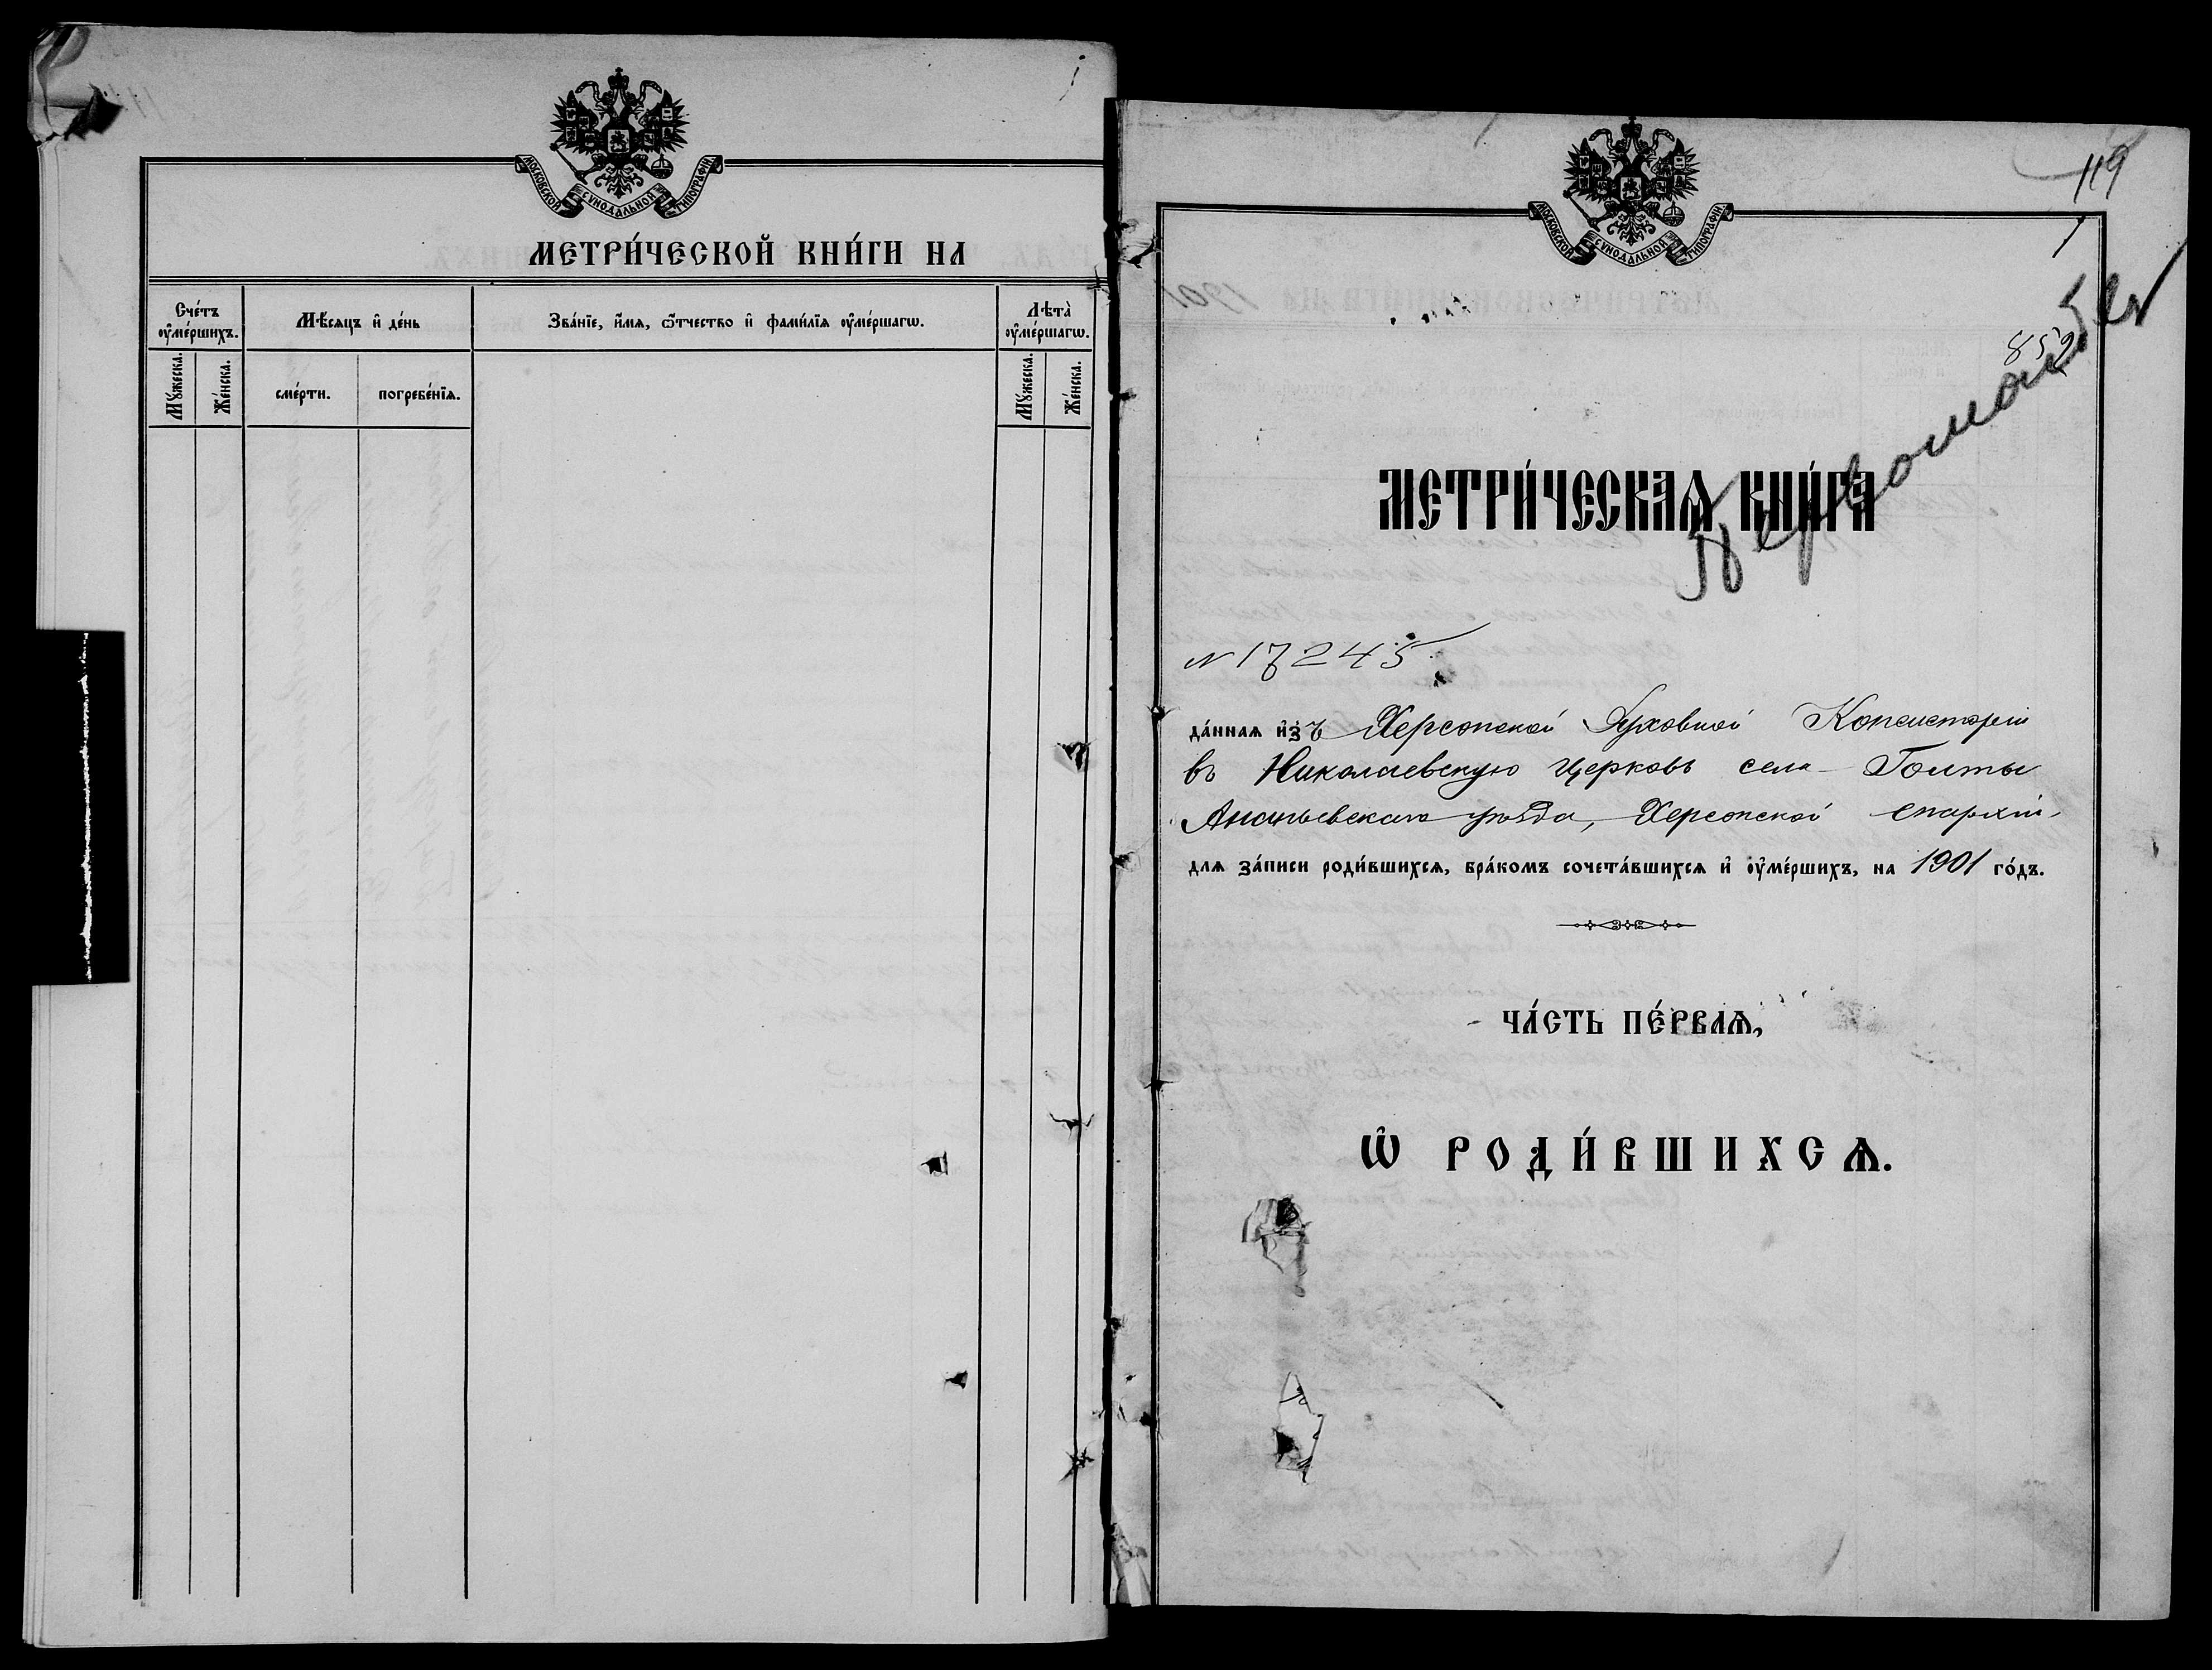 МОСКОВСКОЙ СѴНОДАЛЬНОЙ ТИПОГРАФІИ
МЕТРИ́ЧЕСКОЙ КНИ́ГИ НА
Сче́тъ ᲂу҆ме́ршихъ.
Мѣ́сяцъ и҆ де́нь
Зва́нїе, и҆́мя, ѻ҆́тчество и҆ фами́лїя ᲂу҆ме́ршагѡ.
Лѣта̀ ᲂу҆ме́ршагѡ.
Мꙋ́жеска.
Же́нска.
сме́рти.
погребе́нїѧ.
Мꙋ́жеска.
Же́нска.
МОСКОВСКОЙ СѴНОДАЛЬНОЙ ТИПОГРАФІИ
119
852
Первомайск
МЕТРИ́ЧЕСКАѦ КНИ́ГА
N 17245
да́ннаѧ и҆зъ Херсонской Духовной Консисторіи
въ Николаевскую Церковь села Голты
Ананьевскаго уѣзда, Херсонской епархіи,
длѧ за́писи роди́вшихсѧ, бра́комъ сочета́вшихсѧ и҆ ᲂу҆ме́ршихъ, на 1901 го́дъ.
ЧА́СТЬ ПЕ́РВАѦ,
Ѽ РОДИ́ВШИХСѦ.